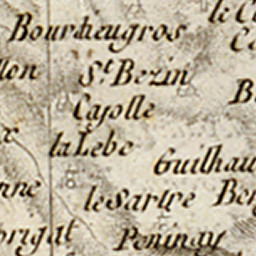 le C
Bourdieugros
Ca
llon
St. Bezin
B
Casolle
x
la Lebe
Guilhau
nne
le Sartre
Ber
brigat
Peninay